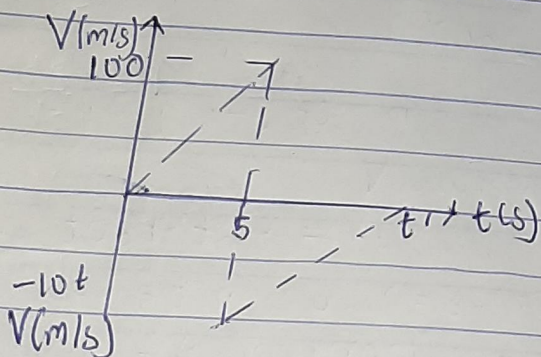 V(m/s)
100
5
t₁
t(s)
-10t
V(m/s)